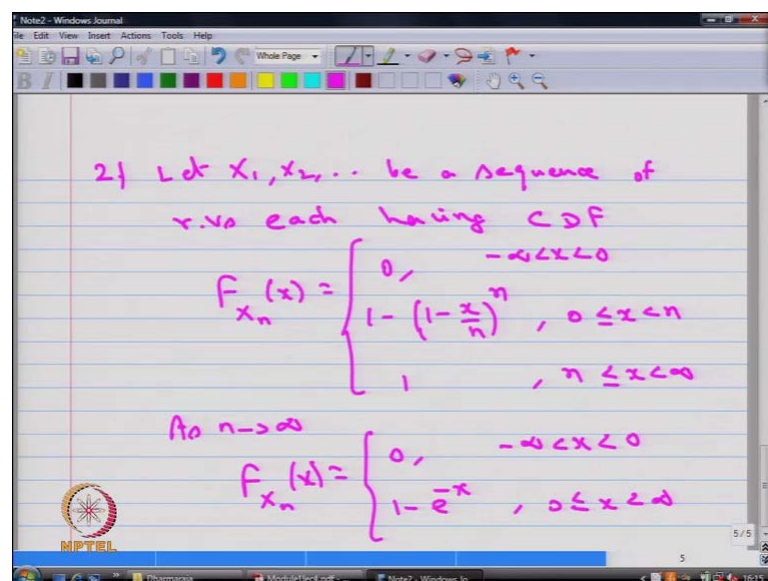 Note2 - Windows Journal
File Edit View Insert Actions Tools Help
Whole Page
B I
2) Let X₁, X₂, .. be a sequence of
r.vs each having CDF
F_{X_n}(x) = { 0, -∞<x<0
1 - (1 - x/n)^n , 0 ≤ x < n
1 , n ≤ x < ∞
As n -> ∞
F_{X_n}(x) = { 0, -∞ < x < 0
1 - e^{-x} , 0 ≤ x < ∞
NPTEL
5/5
5
Dharmaraja
Note2 - Windows Jo
16:15